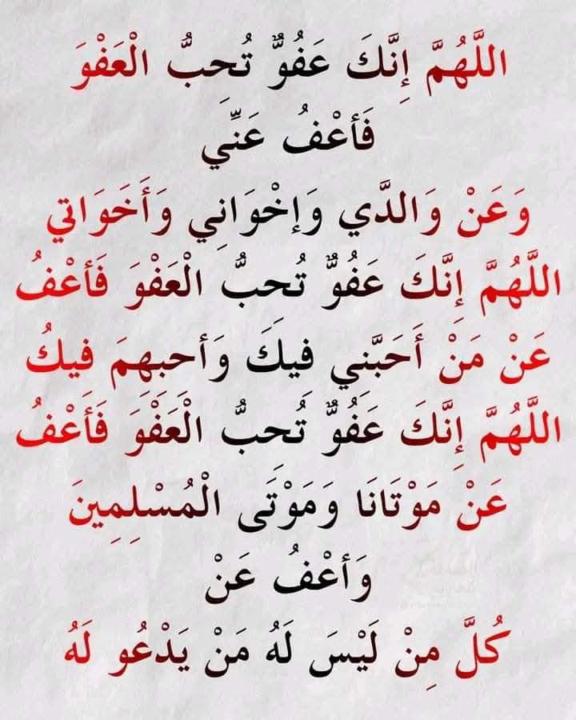 اللَّهُمَّ إِنَّكَ عَفُوٌّ تُحِبُّ الْعَفْوَ
فَأعْفُ عَنِّي
وَعَنْ وَالدَّي وَإخْوَانِي وَأَخَوَاتي
اللَّهُمَّ إِنَّكَ عَفُوٌّ تُحبُّ الْعَفْوَ فَأعْفُ
عَنْ مَنْ أَحَبَّني فيكَ وَأحبهمَ فيكُ
اللَّهُمَّ إِنَّكَ عَفُوٌّ تُحبُّ الْعَفْوَ فَأَعْفُ
عَنْ مَوْتَانَا وَمَوْتَى الْمُسْلِمِينَ
وَأعْفُ عَنْ
كُلَّ مِنْ لَيْسَ لَهُ مَنْ يَدْعُو لَهُ